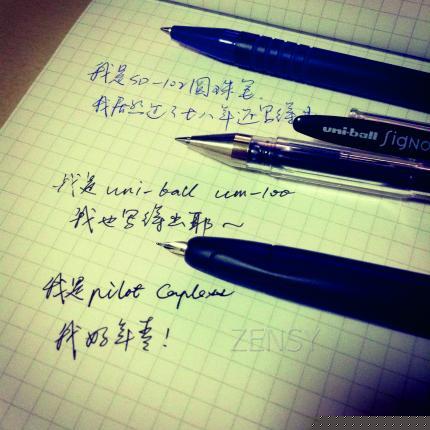 我是SD-102圆珠笔
我居然过了七八年还写得出
uni-ball SigNo
我是uni-ball um-100
我也写得出耶~
我是pilot Capless
我好年青!
ZENSY